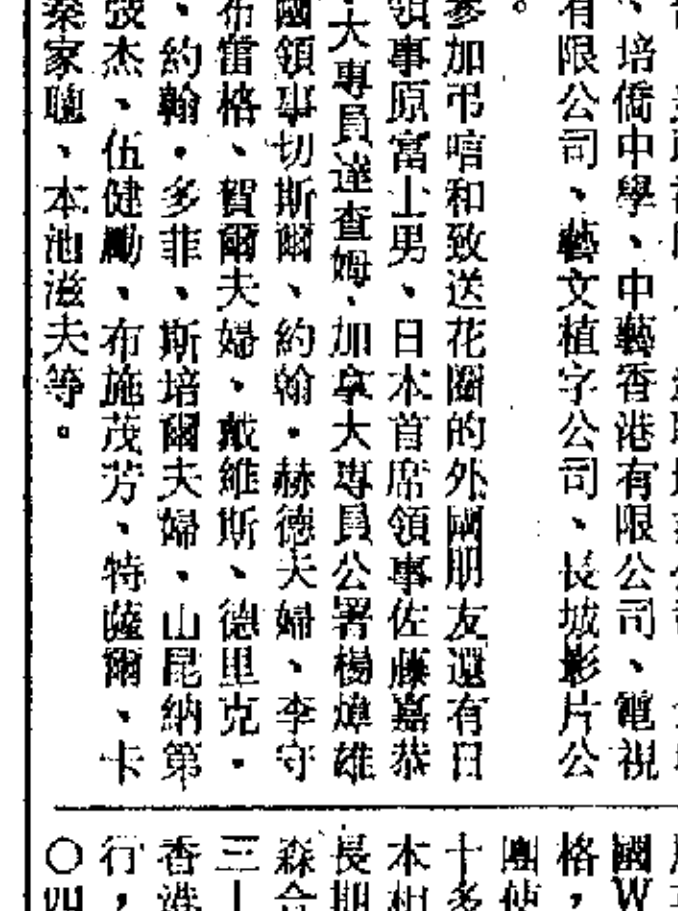 、培僑中學、中藝香港有限公司、電視
有限公司、藝文植字公司、長城影片公
。
參加弔唁和致送花圈的外國朋友還有日
領事原富士男、日本首席領事佐藤嘉恭
大專員達查姆、加拿大專員公署楊焯雄
國領事切斯爾、約翰·赫德夫婦、李守
布雷格、賀爾夫婦、戴維斯、德里克·
、約翰·多菲、斯培爾夫婦、山昆納第
張杰、伍健勵、布施茂芳、特薩爾、卡
秦家驄、本池滋夫等。
國W
格，
團使
十多
本相
長期
森合
三十
香港
行，
〇四